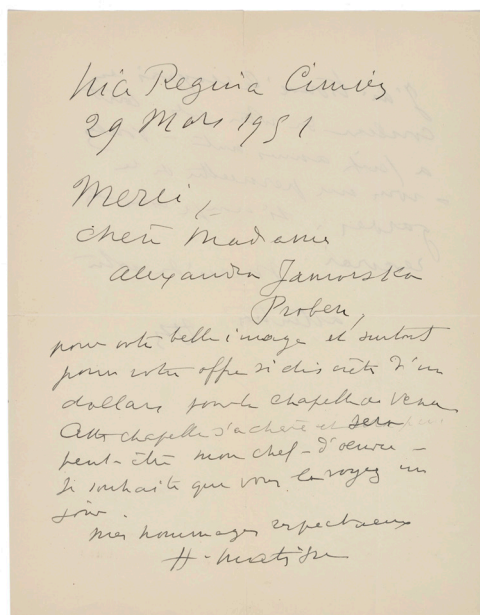 Regina Cimiez
29 Mars 1951
Merci,
chère Madame
Alexandra Jaworska
Proben,
pour votre belle image et surtout
pour votre offre si discrète d'un
dollar, pour la chapelle de Vence
Cette chapelle s'achève et sera
peut-être mon chef-d'œuvre -
Je souhaite que vous la voyez un
jour.
mes hommages respectueux
H. Matisse